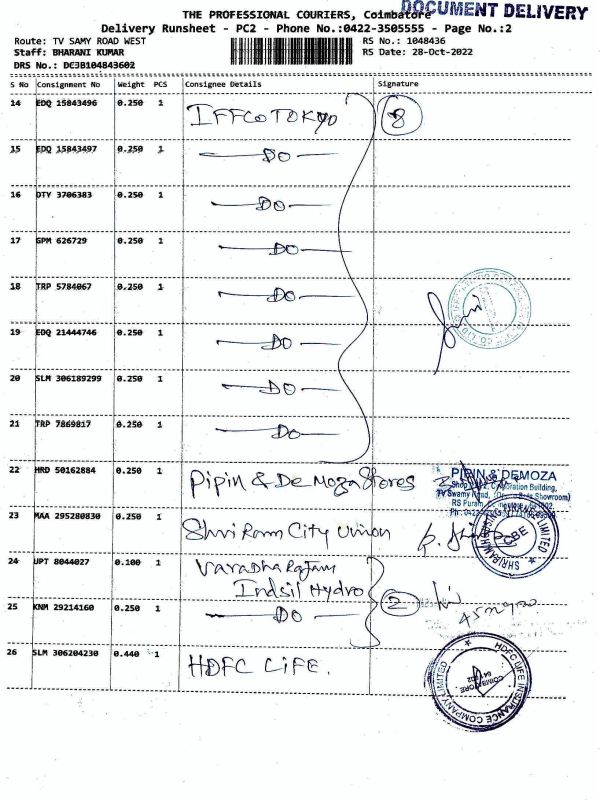 DOCUMENT DELIVERY
THE PROFESSIONAL COURIERS, Coimbatore
Delivery Runsheet - PC2 - Phone No.:0422-3505555 - Page No.:2
Route: TV SAMY ROAD WEST
RS No.: 1048436
Staff: BHARANI KUMAR
RS Date: 28-Oct-2022
DRS No.: DC3B104843602
S No Consignment No Weight PCS Consignee Details Signature
14 EDQ 15843496 0.250 1 IFFCO TOKYO 8
15 EDQ 15843497 0.250 1 DO
16 DTY 3706383 0.250 1 DO
17 GPM 626729 0.250 1 DO
18 TRP 5784067 0.250 1 DO
19 EDQ 21444746 0.250 1 DO
20 SLM 306189299 0.250 1 DO
21 TRP 7869817 0.250 1 DO
22 HRD 50162884 0.250 1 Pipin & De Moza Stores
PIPIN & DEMOZA
Corporation Building,
TV Swamy Road, Showroom)
RS Puram,
23 MAA 295280830 0.250 1 Shri Ram City Union
LIMITED
CBE
24 UPT 8044027 0.100 1 Varadha Rajam
Indsil Hydro 2
25 KNM 29214160 0.250 1 DO
26 SLM 306204230 0.440 1 HDFC LIFE.
HDFC LIFE INSURANCE COMPANY LIMITED
COIMBATORE